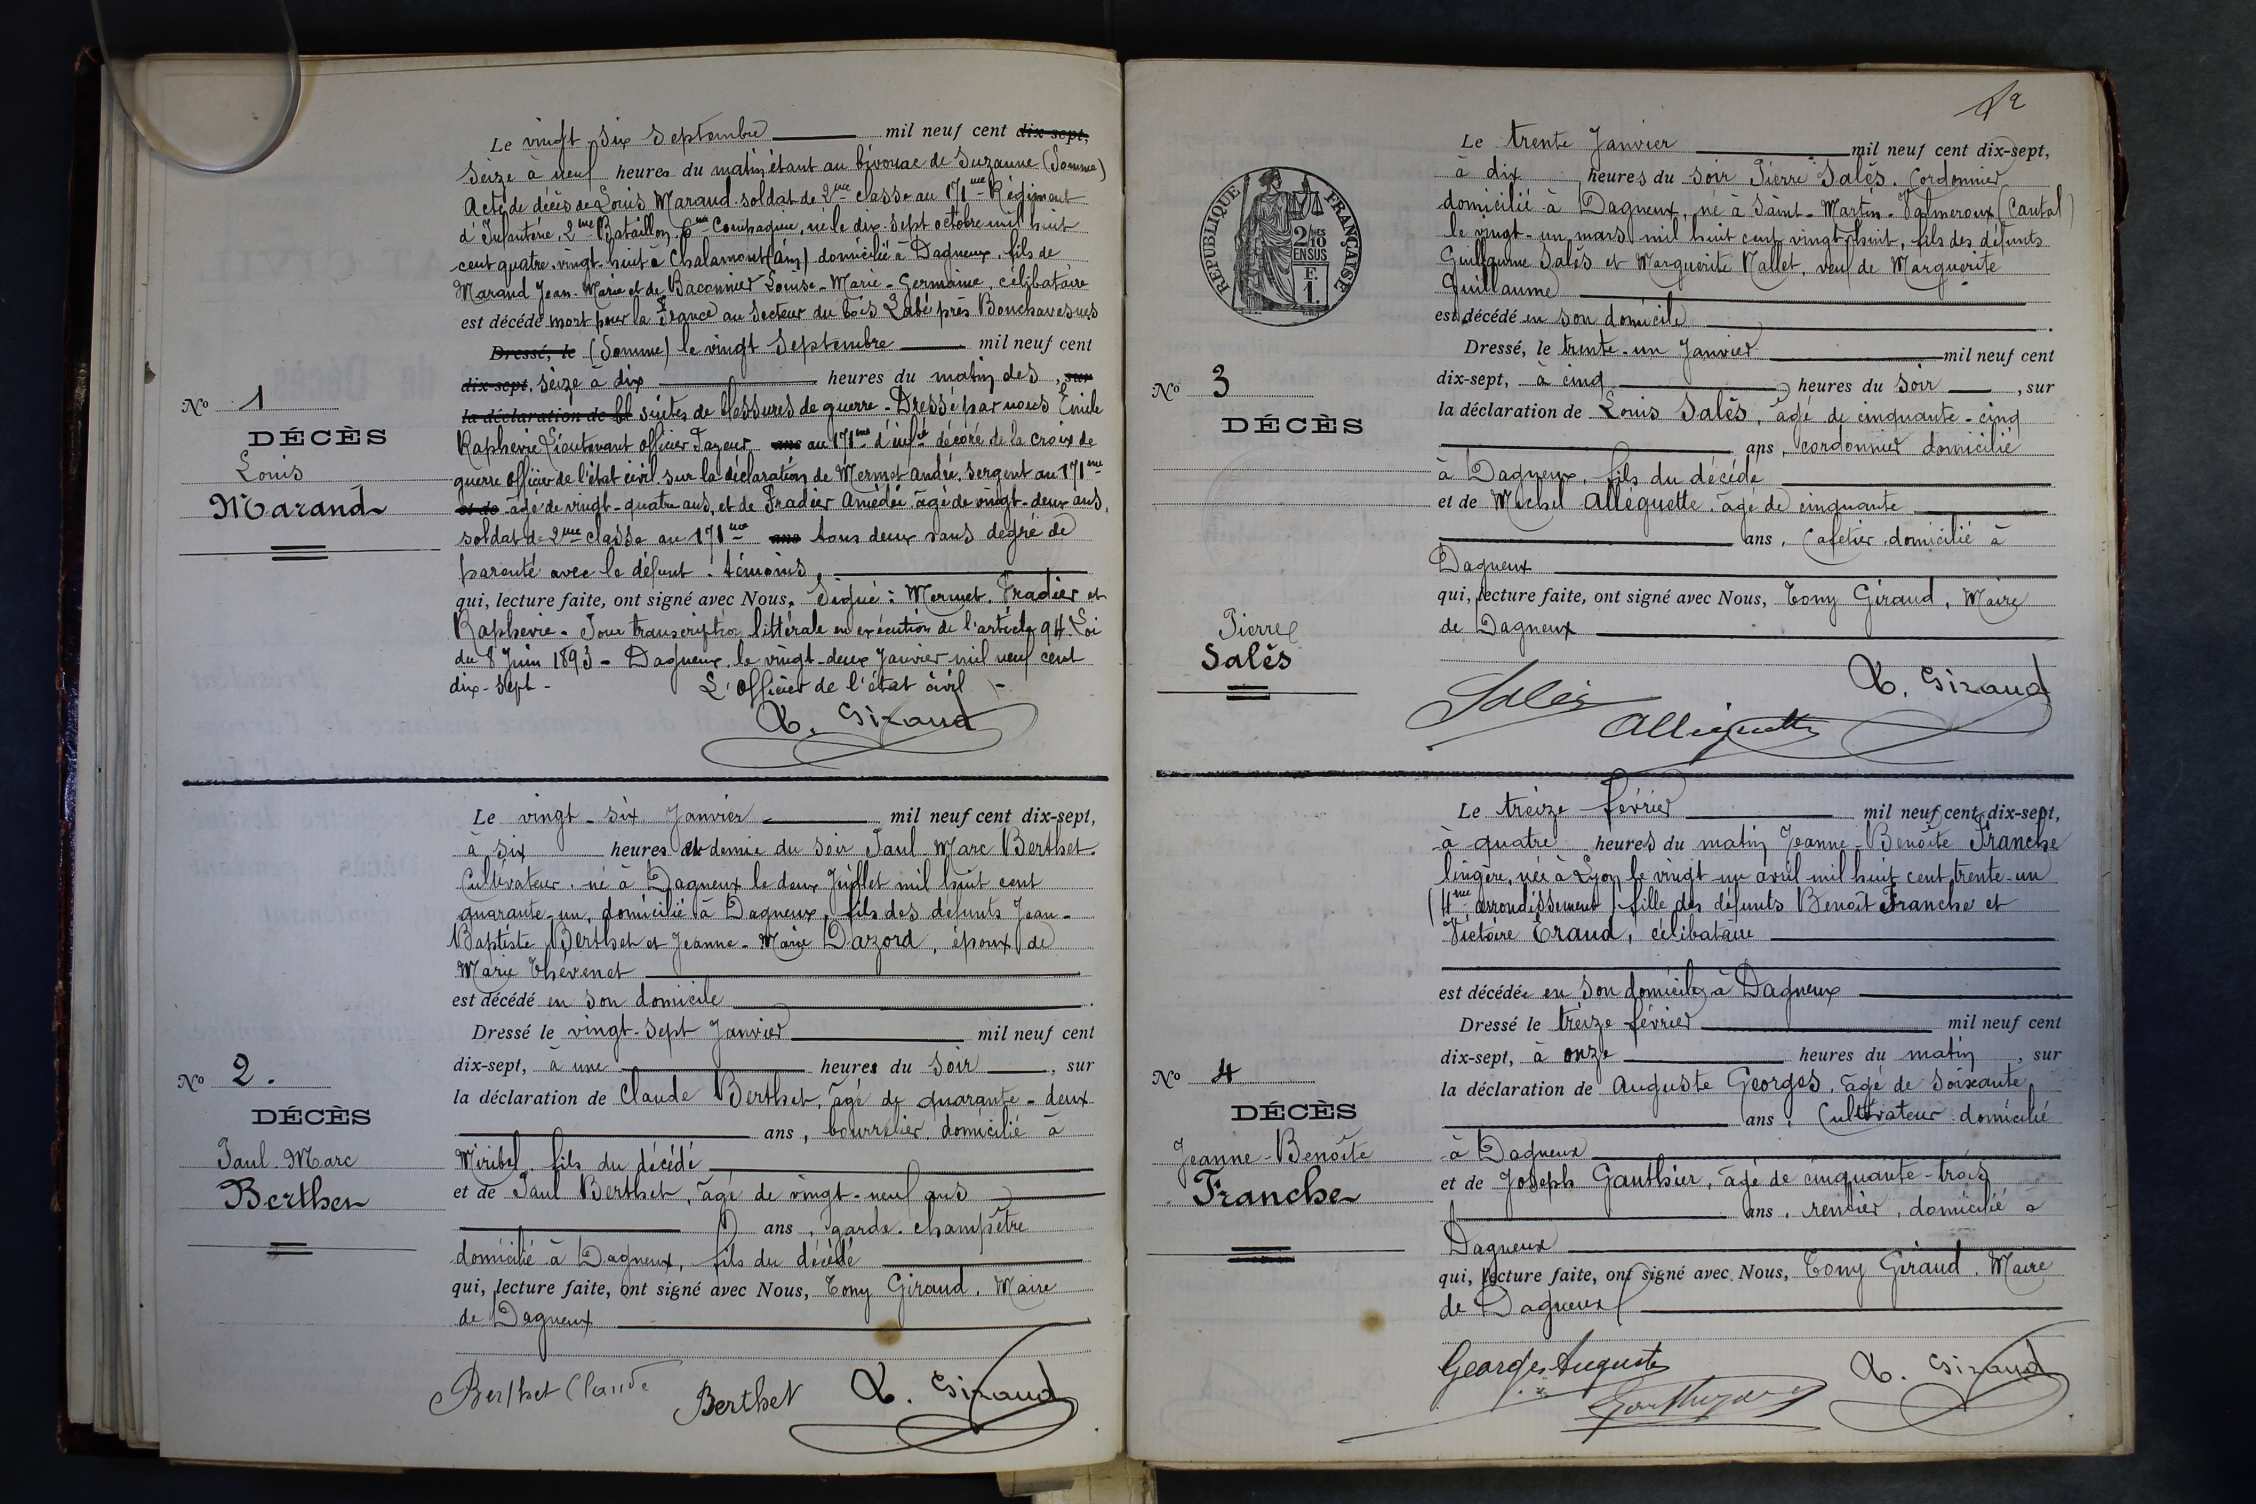 Le vingt-six Septembre mil neuf cent dix-sept,
Seize à neuf heures du matin, étant au bivouac de Suzanne (Somme)
Acte de décès de Louis Marand soldat de 2me classe au 171me Régiment
d'Infanterie, 2me Bataillon, 6me Compagnie, né le dix-sept octobre mil huit
cent quatre-vingt-huit à Chalamont (Ain) domicilié à Dagneux, fils de
Marand Jean-Marie et de Baconnier Louise-Marie-Germaine, célibataire
est décédé mort pour la France au Secteur du bois Labé près Bouchavesnes
Dressé, le (Somme) le vingt Septembre mil neuf cent
dix-sept, seize à dix heures du matin des , sur
la déclaration de suites de blessures de guerre - Dressé par nous Emile
Raphevie Lieutenant officier Payeur ans au 171me d'infie décoré de la croix de
guerre officier de l'état civil, sur la déclaration de Mermet André, sergent au 171me
et de âgé de vingt-quatre ans, et de Fradier Amédée, âgé de vingt-deux ans,
soldat de 2me classe au 171me ans tous deux sans degré de
parenté avec le défunt, témoins,
qui, lecture faite, ont signé avec Nous, Signé : Mermet, Fradier et
Raphevie - Pour transcription littérale en exécution de l'article 94 Loi
du 8 Juin 1893 - Dagneux, le vingt-deux Janvier mil neuf cent
dix-sept - L'officier de l'état civil -
T. Giraud
No 1
DÉCÈS
Louis
Marand
Le vingt-six Janvier mil neuf cent dix-sept,
à six heures et demie du soir Paul Marc Berthet
Cultivateur, né à Dagneux le deux Juillet mil huit cent
quarante-un, domicilié à Dagneux, fils des défunts Jean-
Baptiste Berthet et Jeanne-Marie Dazord, époux de
Marie Thévenet
est décédé en son domicile .
Dressé le vingt-sept Janvier mil neuf cent
dix-sept, à une heures du soir , sur
la déclaration de Claude Berthet, âgé de quarante-deux
ans, bourrelier, domicilié à
Miribel, fils du décédé
et de Paul Berthet, âgé de vingt-neuf ans
ans, garde-champêtre
domicilié à Dagneux, fils du décédé
qui, lecture faite, ont signé avec Nous, Tony Giraud, Maire
de Dagneux
Berthet Claude Berthet T. Giraud
No 2.
DÉCÈS
Paul Marc
Berthet
2
RÉPUBLIQUE FRANÇAISE
2/10 EN SUS
F. 1.
Le trente Janvier mil neuf cent dix-sept,
à dix heures du soir Pierre Salès, Cordonnier
domicilié à Dagneux, né à Saint-Martin-Valmeroux (Cantal)
le vingt-un mars mil huit cent vingt-huit, fils des défunts
Guillaume Salès et Marguerite Mallet, veuf de Marguerite
Guillaume
est décédé en son domicile .
Dressé, le trente-un Janvier mil neuf cent
dix-sept, à cinq heures du soir , sur
la déclaration de Louis Salès, âgé de cinquante-cinq
ans, cordonnier domicilié
à Dagneux, fils du décédé
et de Michel Alléguette, âgé de cinquante
ans, Cafetier, domicilié à
Dagneux
qui, lecture faite, ont signé avec Nous, Tony Giraud, Maire
de Dagneux
Salès Alléguette T. Giraud
No 3
DÉCÈS
Pierre
Salès
Le treize février mil neuf cent dix-sept,
à quatre heures du matin Jeanne-Benoîte Franche
lingère, née à Lyon, le vingt un avril mil huit cent trente-un
(4me arrondissement) fille des défunts Benoît Franche et
Victoire Eraud, célibataire
est décédée en son domicile à Dagneux
Dressé le treize février mil neuf cent
dix-sept, à onze heures du matin , sur
la déclaration de Auguste Georges, âgé de soixante
ans, Cultivateur domicilié
à Dagneux
et de Joseph Gauthier, âgé de cinquante-trois
ans, rentier, domicilié à
Dagneux
qui, lecture faite, ont signé avec Nous, Tony Giraud, Maire
de Dagneux
Georges Auguste Gauthier T. Giraud
No 4
DÉCÈS
Jeanne-Benoîte
Franche